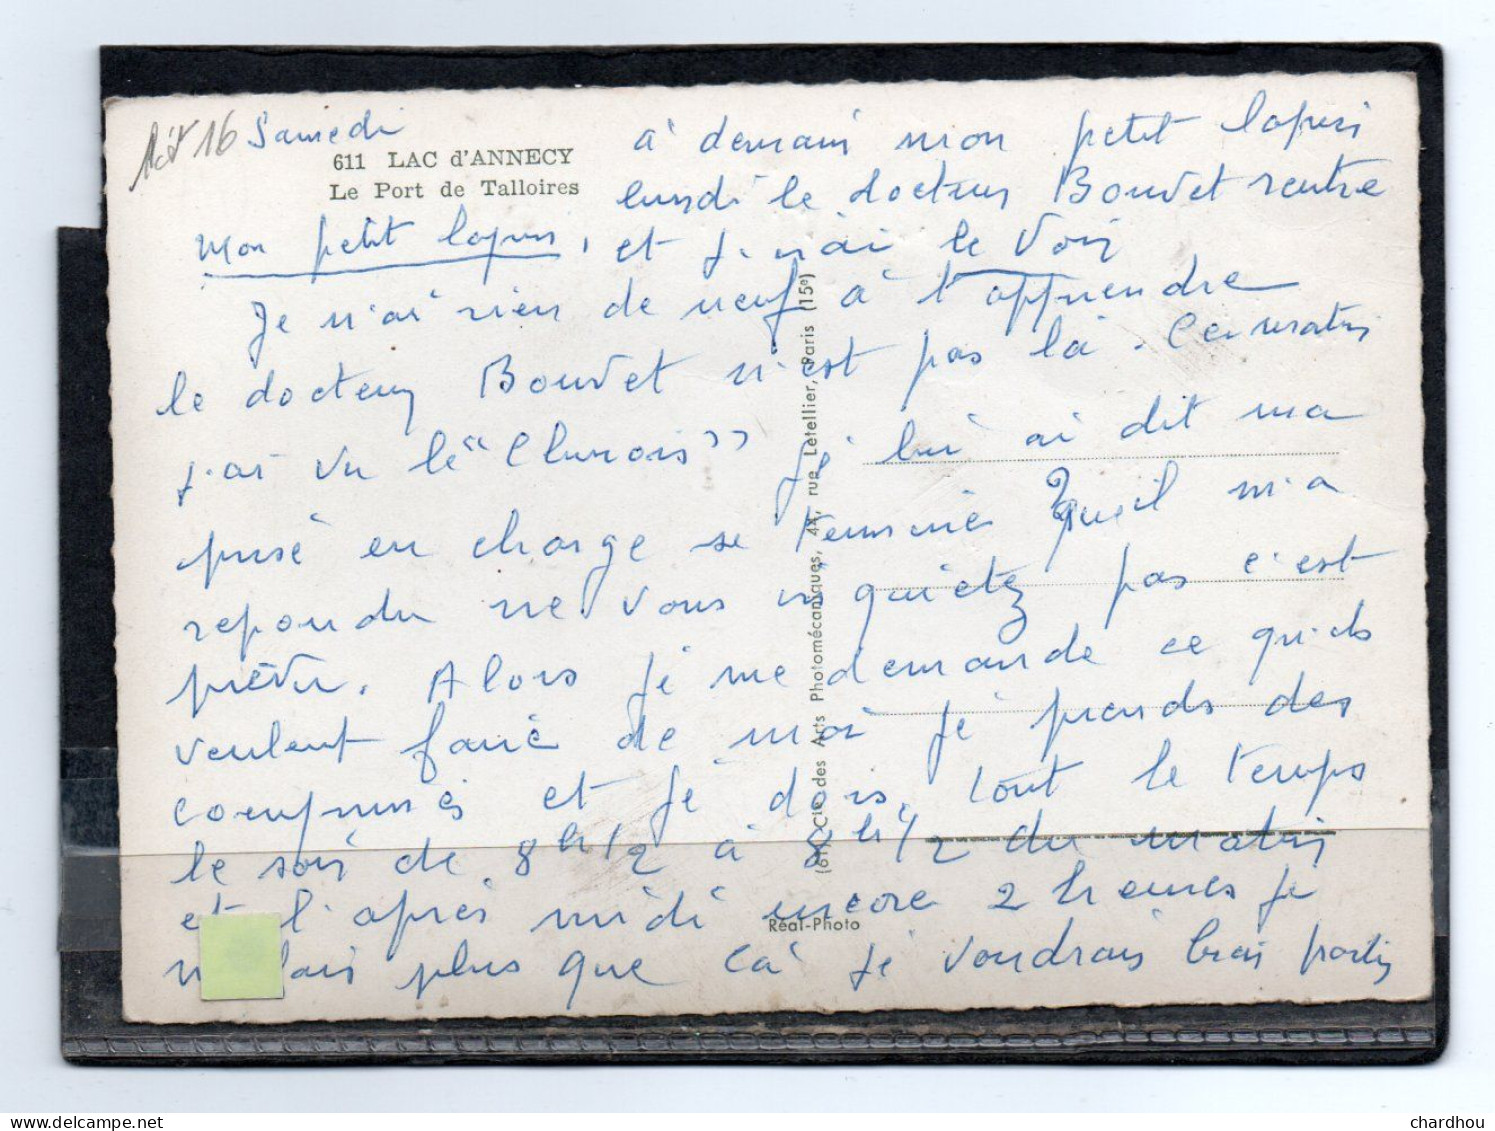 Samedi
611 LAC d'ANNECY
Le Port de Talloires
mon petit lapin,
Je n'ai rien de neuf à t'apprendre
le docteur Bouvet n'est pas là. Ce matin
j'ai vu le "Chinois" je lui ai dit ma
prise en charge se termine ? que il m'a
repondu ne vous inquietez pas c'est
prévu. Alors je me demande ce qu'ils
veulent faire de moi je prends des
comprimés et je dors. tout le temps
le soir de 8h1/2 à 8h1/2 du matin
et l'après midi encore 2 heures je
fais plus que ca je voudrais bien partir
à demain mon petit lapin
lundi le docteur Bouvet rentre
et j'irai le voir
(61) Cie des Arts Photomécaniques, 44, rue Letellier, Paris (15e)
Réal-Photo
chardhou